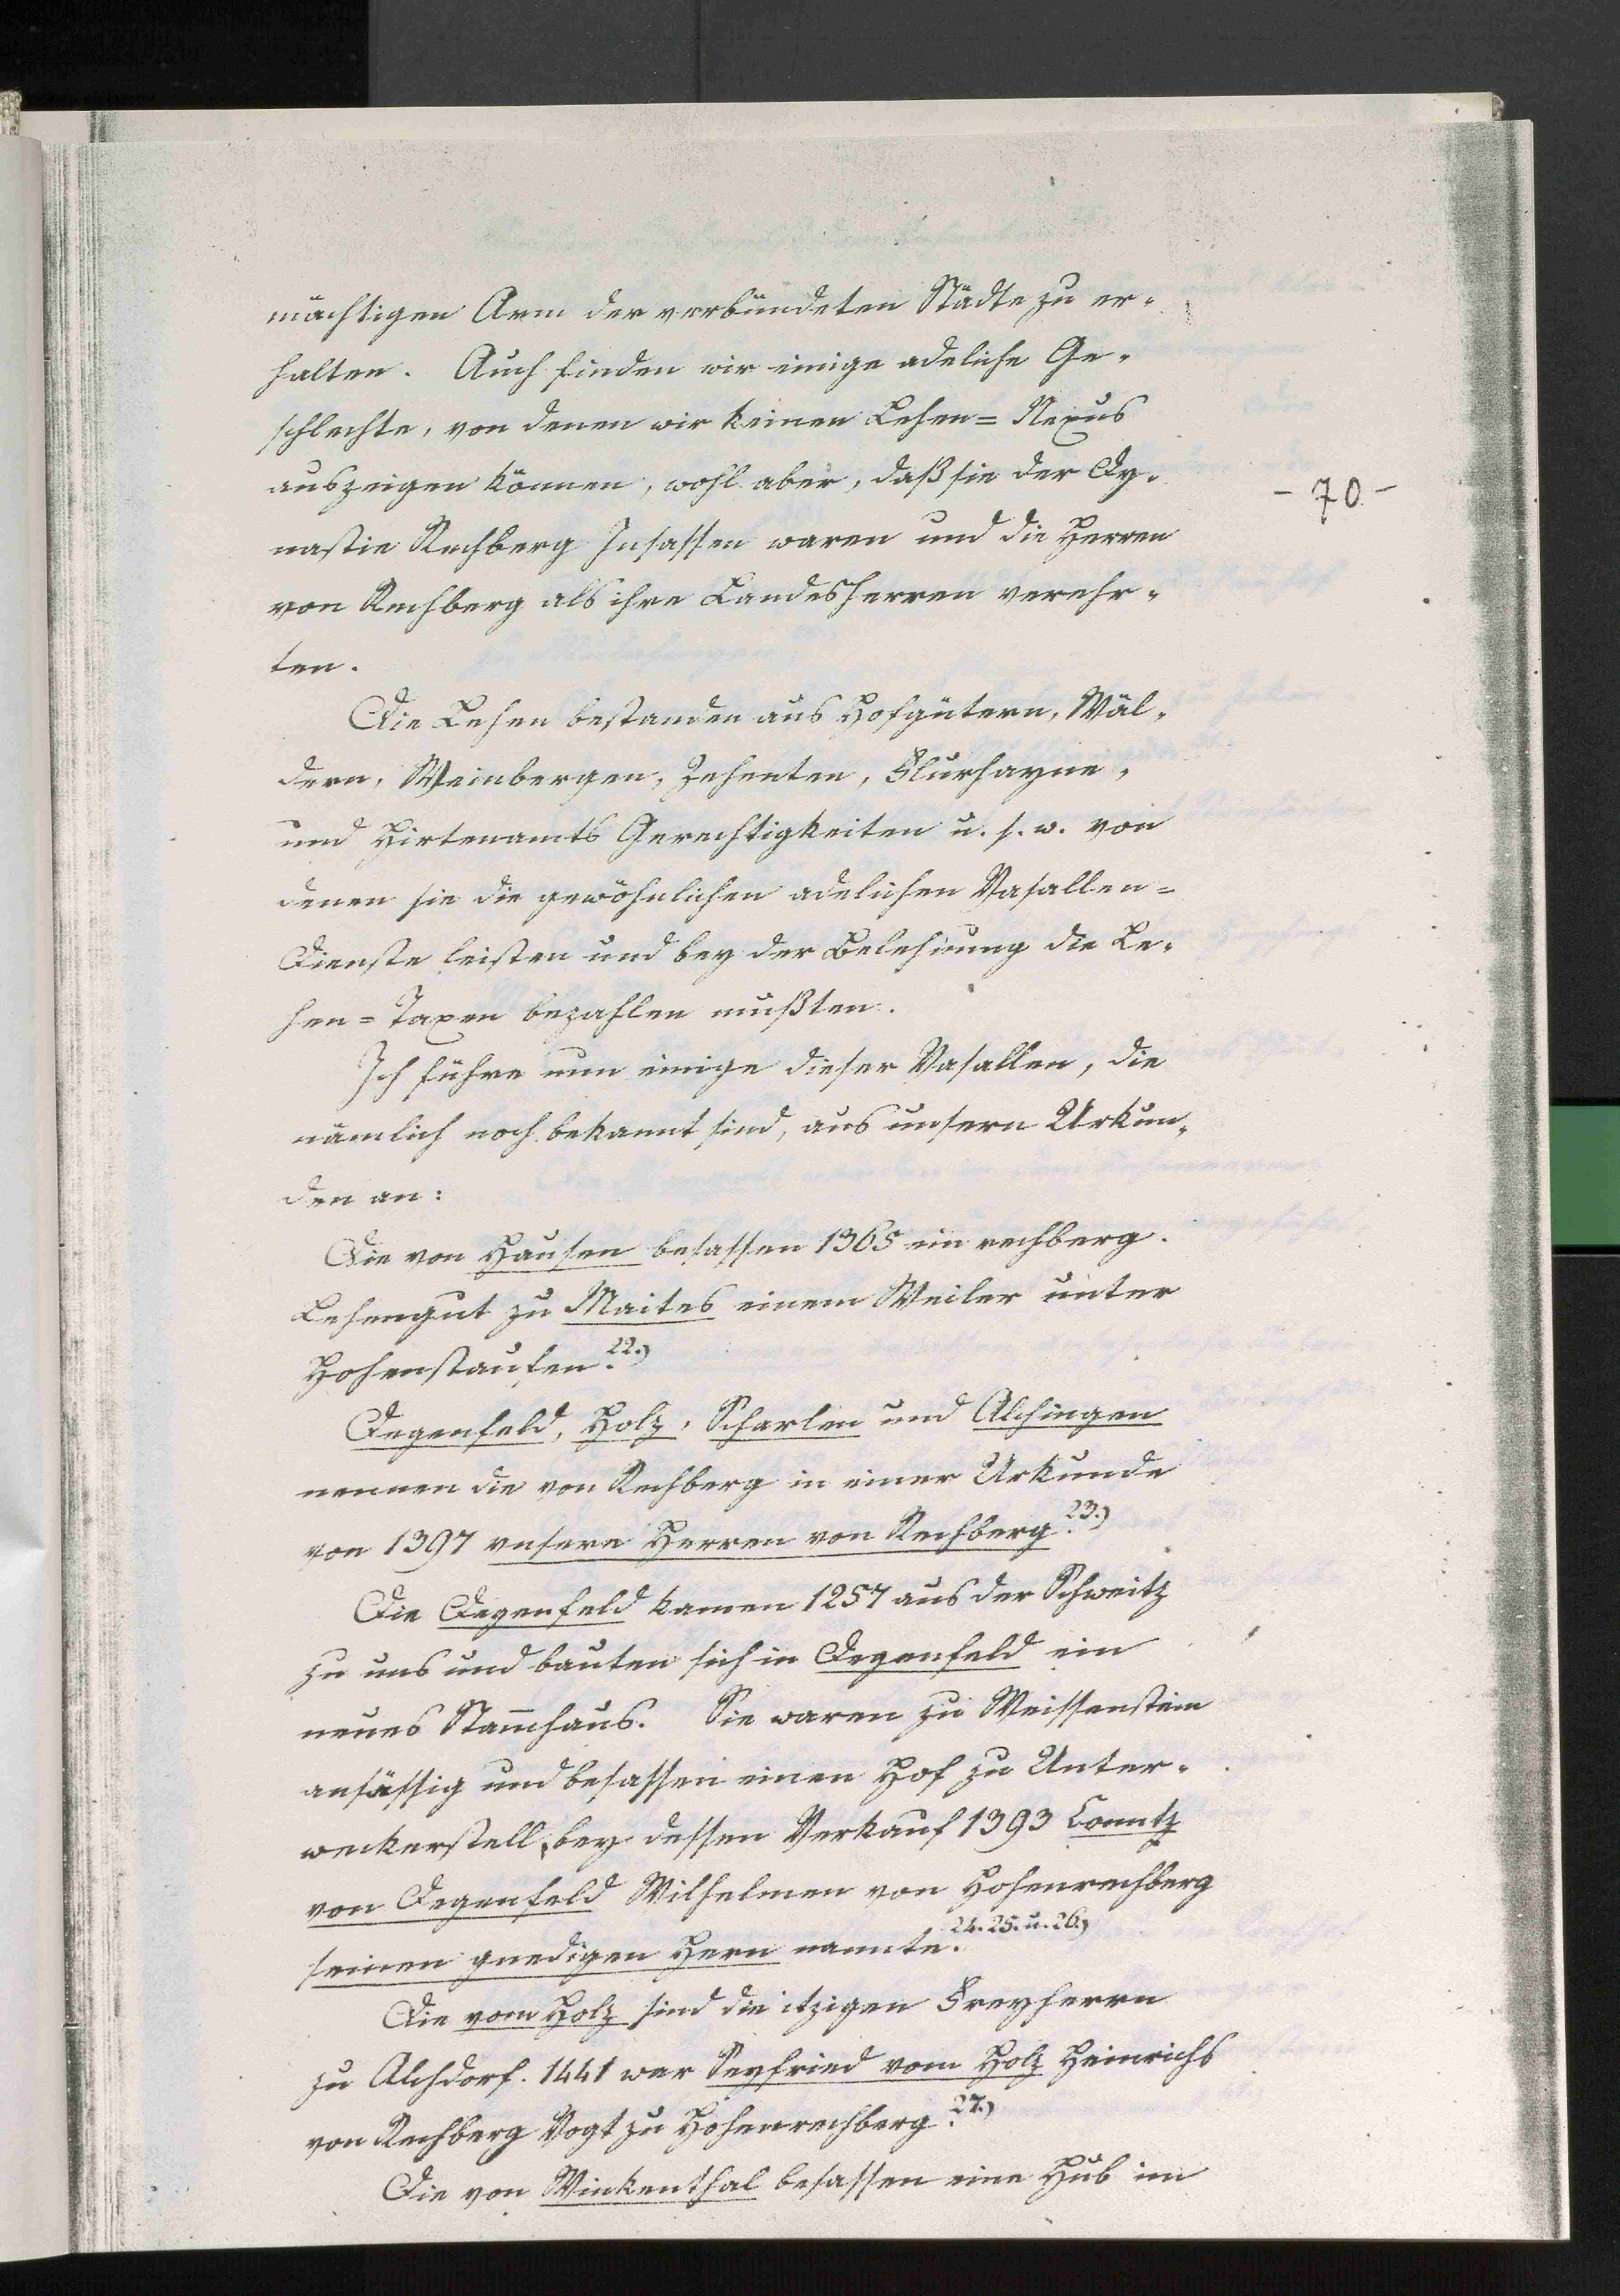 mächtigen Arm der verbündeten Städte zu er-
halten. Auch finden wir einige adeliche Ge-
schlechte, von denen wir keinen Lehen= Nexus
aufzeigen können, wohl aber, daß sie der Dy-
- 70 -
nastie Rechberg Insassen waren und die Herren
von Rechberg als ihre Landesherren verehr-
ten.
Die Lehen bestanden aus Hofgütern, Wäl-
dern, Weinbergen, Zehenten, Flurhayne-
und Hirtenamts Gerechtigkeiten u. s. w. von
denen sie die gewöhnlichen adelichen Vasallen=
Dienste leisten und bey der Belehnung die Le-
hen= Taxen bezahlen mußten.
Ich führe nun einige dieser Vasallen, die
nämlich noch bekannt sind, aus unsern Urkun-
den an:
Die von Hausen besassen 1365 ein rechberg.
Lehengut zu Maites einem Weiler unter
Hohenstaufen. 22.)
Degenfeld, Holz, Scharlen und Alchingen
nennen die von Rechberg in einer Urkunde
von 1397 unsere Herren von Rechberg. 23.)
Die Degenfeld kamen 1257 aus der Schweitz
zu uns und bauten sich in Degenfeld ein
neues Stam̄haus. Sie waren zu Weissenstein
ansässig und besassen einen Hof zu Unter-
weckerstell, bey dessen Verkauf 1393 Conntz
von Degenfeld Wilhelmen von Hohenrechberg
seinen gnedigen Hern nannte. 24. 25. u. 26.)
Die vom Holz sind die itzigen Freyherrn
zu Alchdorf. 1441 war Seyfried vom Holz Heinrichs
von Rechberg Vogt zu Hohenrechberg. 27.)
Die von Winkenthal besassen eine Hub im